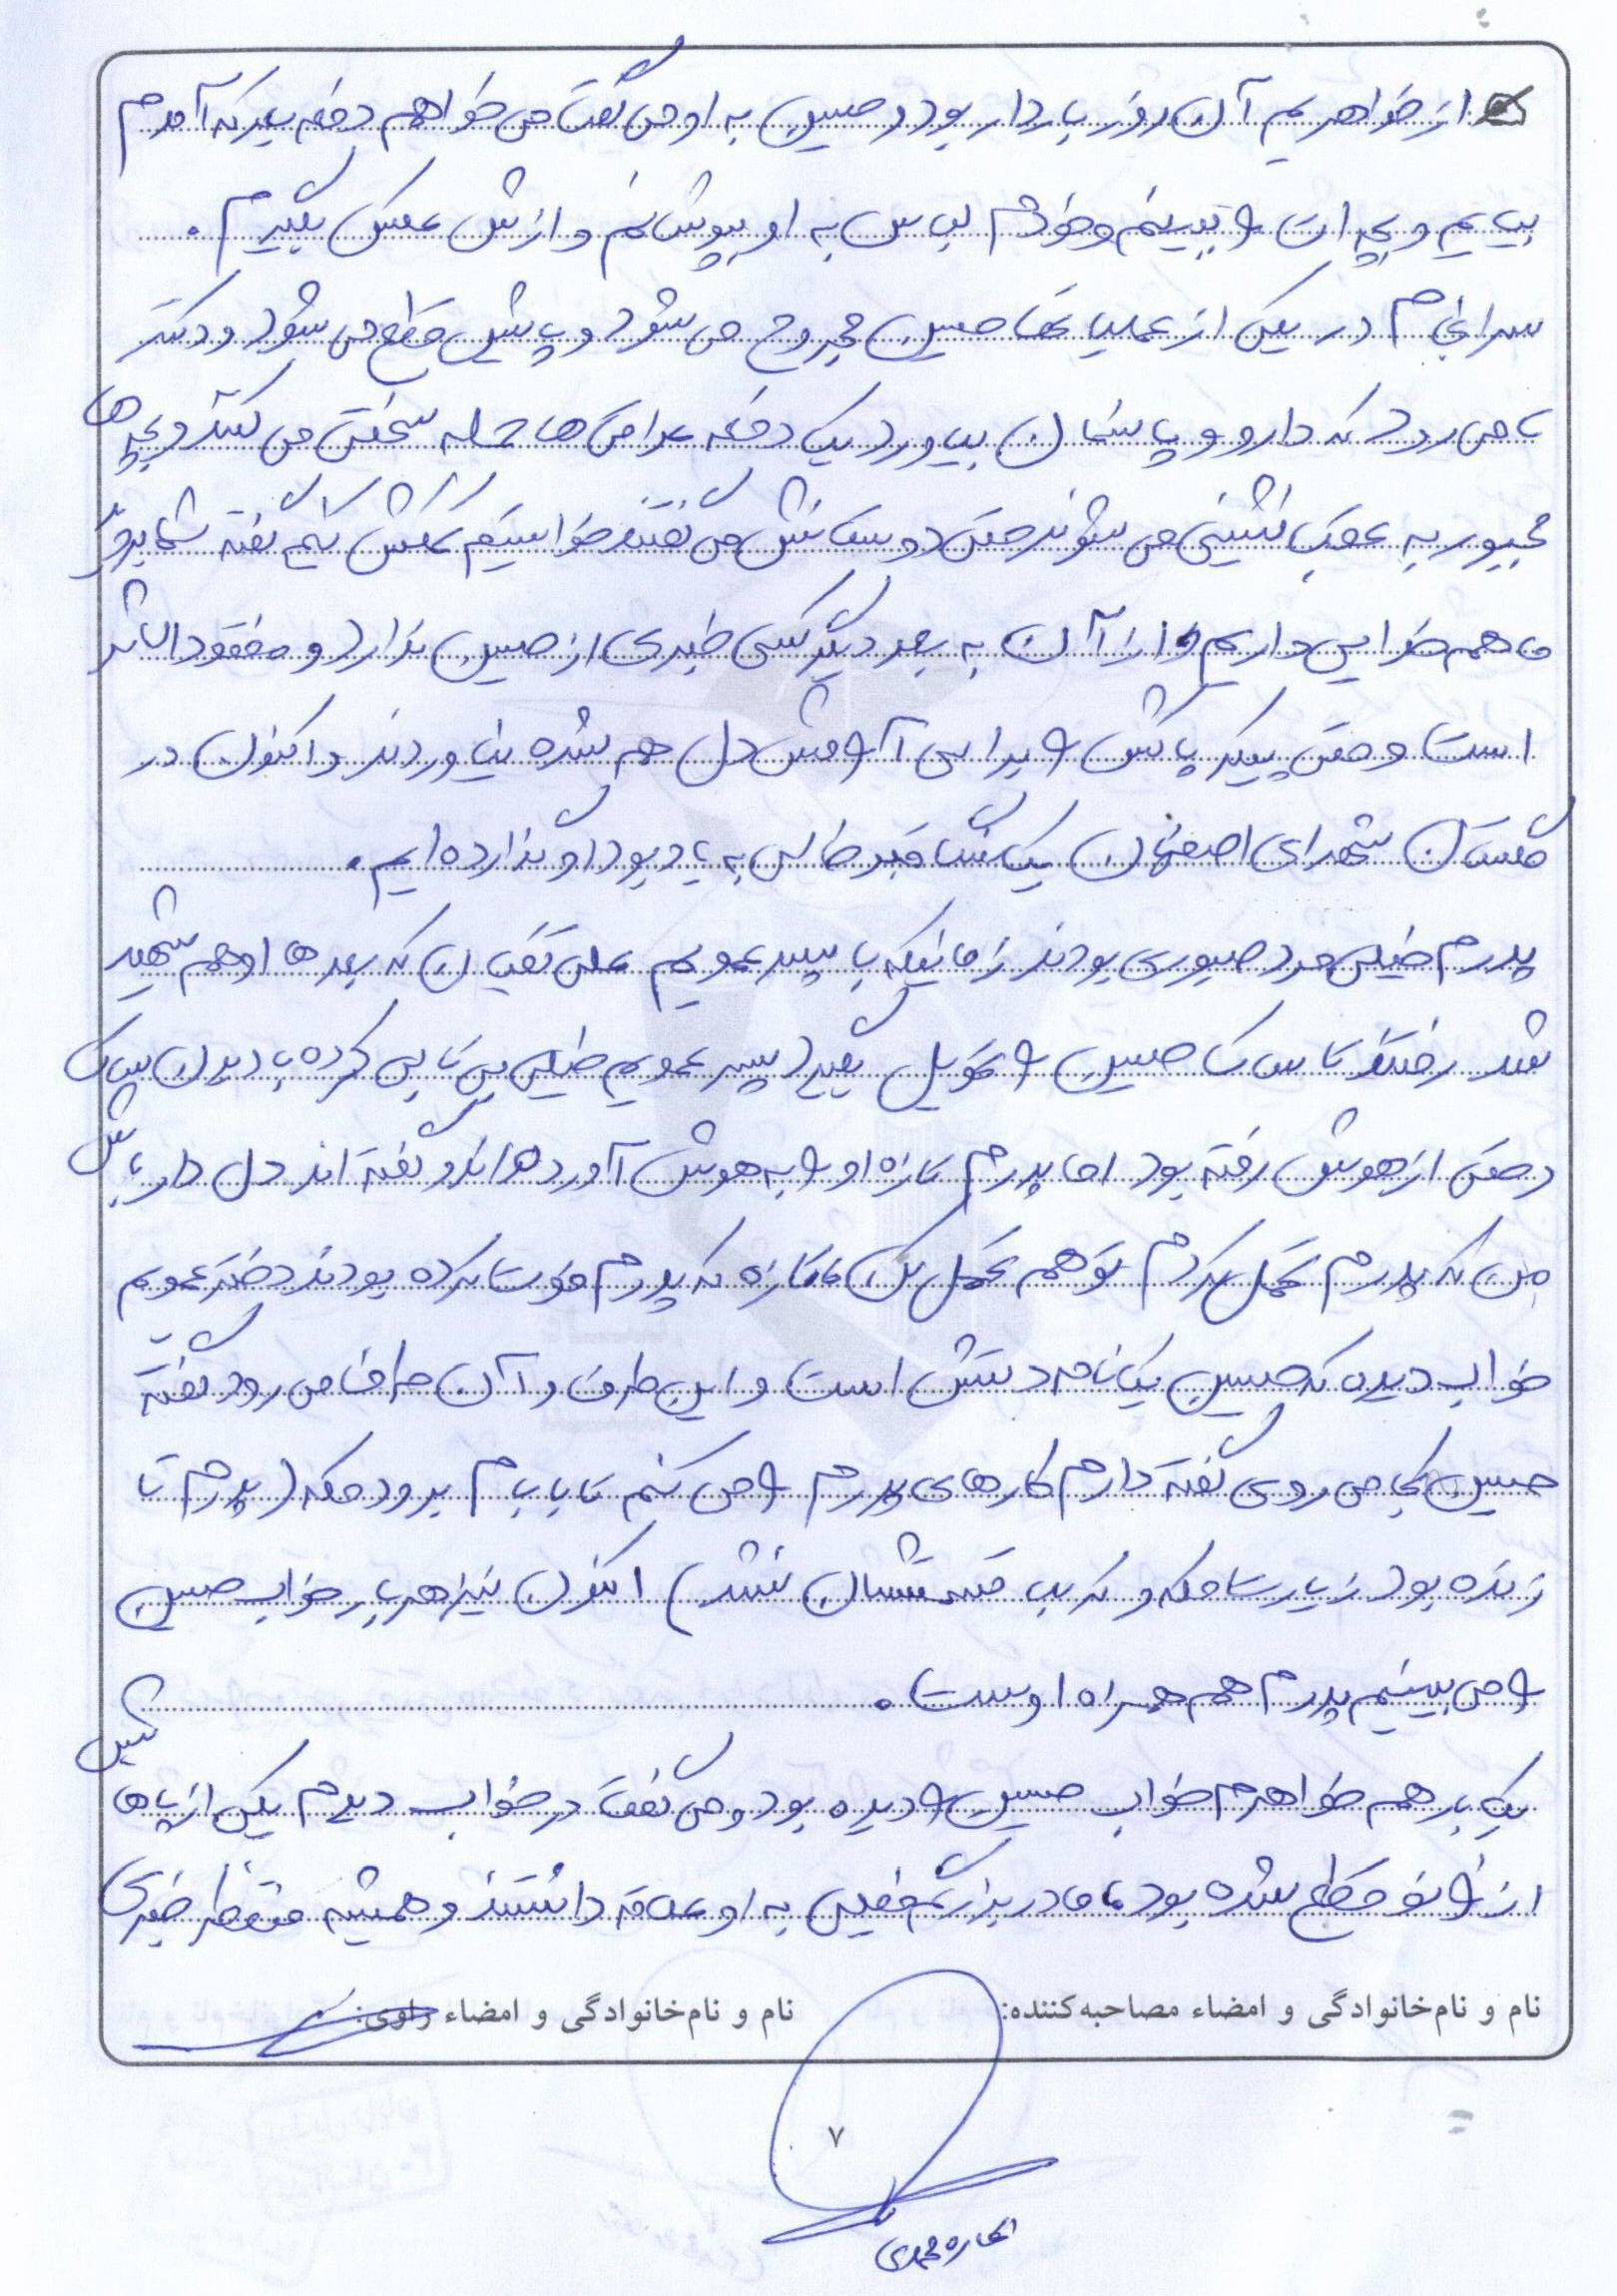 از خواهریم آن روز باردار بود و حسین به او می گفت می خواهم دفعه بعد که آمدم
بیایم و بچه ات و ببینم و خودم لباس به او بپوشانم و ازش عکس بگیرم.
سرانجام در یکی از عملیاتها حسین مجروح می شود و پاشین قطع می شود و دکتر
تا می رود که دارو و پانسمان بیاورد یک دفعه عراقی ها حمله سختی می کنند و بچه ها
مجبور به عقب نشینی می شوند حتی دوستانش می گفتند خواستیم کمکش کنیم گفته شما بروید
ما هم خدایی داریم و از آن به بعد دیگر کسی خبری از حسین ندارد و مفقودالاثر
است و حتی پیکر پاکش و برای آرامش دل هم شده نیاوردند و اکنون در
گلستان شهدای اصفهان یک سنگ قبر خالی به یادبود او گذارده ایم.
پدرم خیلی مرد صبوری بودند زمانیکه با پسر عمویم علی نقیان که بعدها او هم شهید
شد رفتند تا ساک حسین و تحویل بگیرند پسر عمویم خیلی بی تابی کرده با دیدن ساک
و حتی از هوش رفته بود اما پدرم تازه او و به هوش آورده اند و گفته اند دل دار باش
من که پدرم تحمل کردم تو هم تحمل کن تازه که پدرم فوت کرده بودند دختر عمویم
خواب دیده که حسین یک نامه دستش است و این طرف و آن طرف می رود گفته
حسین کجا می روی گفته دارم کارهای پدرم و می کنم تا بابام برود مکه (پدرم تا
زنده بود زیارت مکه و کربلا قسمتشان نشد) اکنون نیز هر بار خواب حسین
و می بینیم پدرم هم همراه اوست.
یک بار هم خواهرم خواب حسین و دیده بود و می گفت در خواب دیدم یکی از پاهایش
از زانو قطع شده بود مادر بزرگم خیلی به او علاقه داشتند و همیشه منتظر خبری
نام و نام‌خانوادگی و امضاء مصاحبه‌کننده:
نام و نام‌خانوادگی و امضاء راوی:
۷